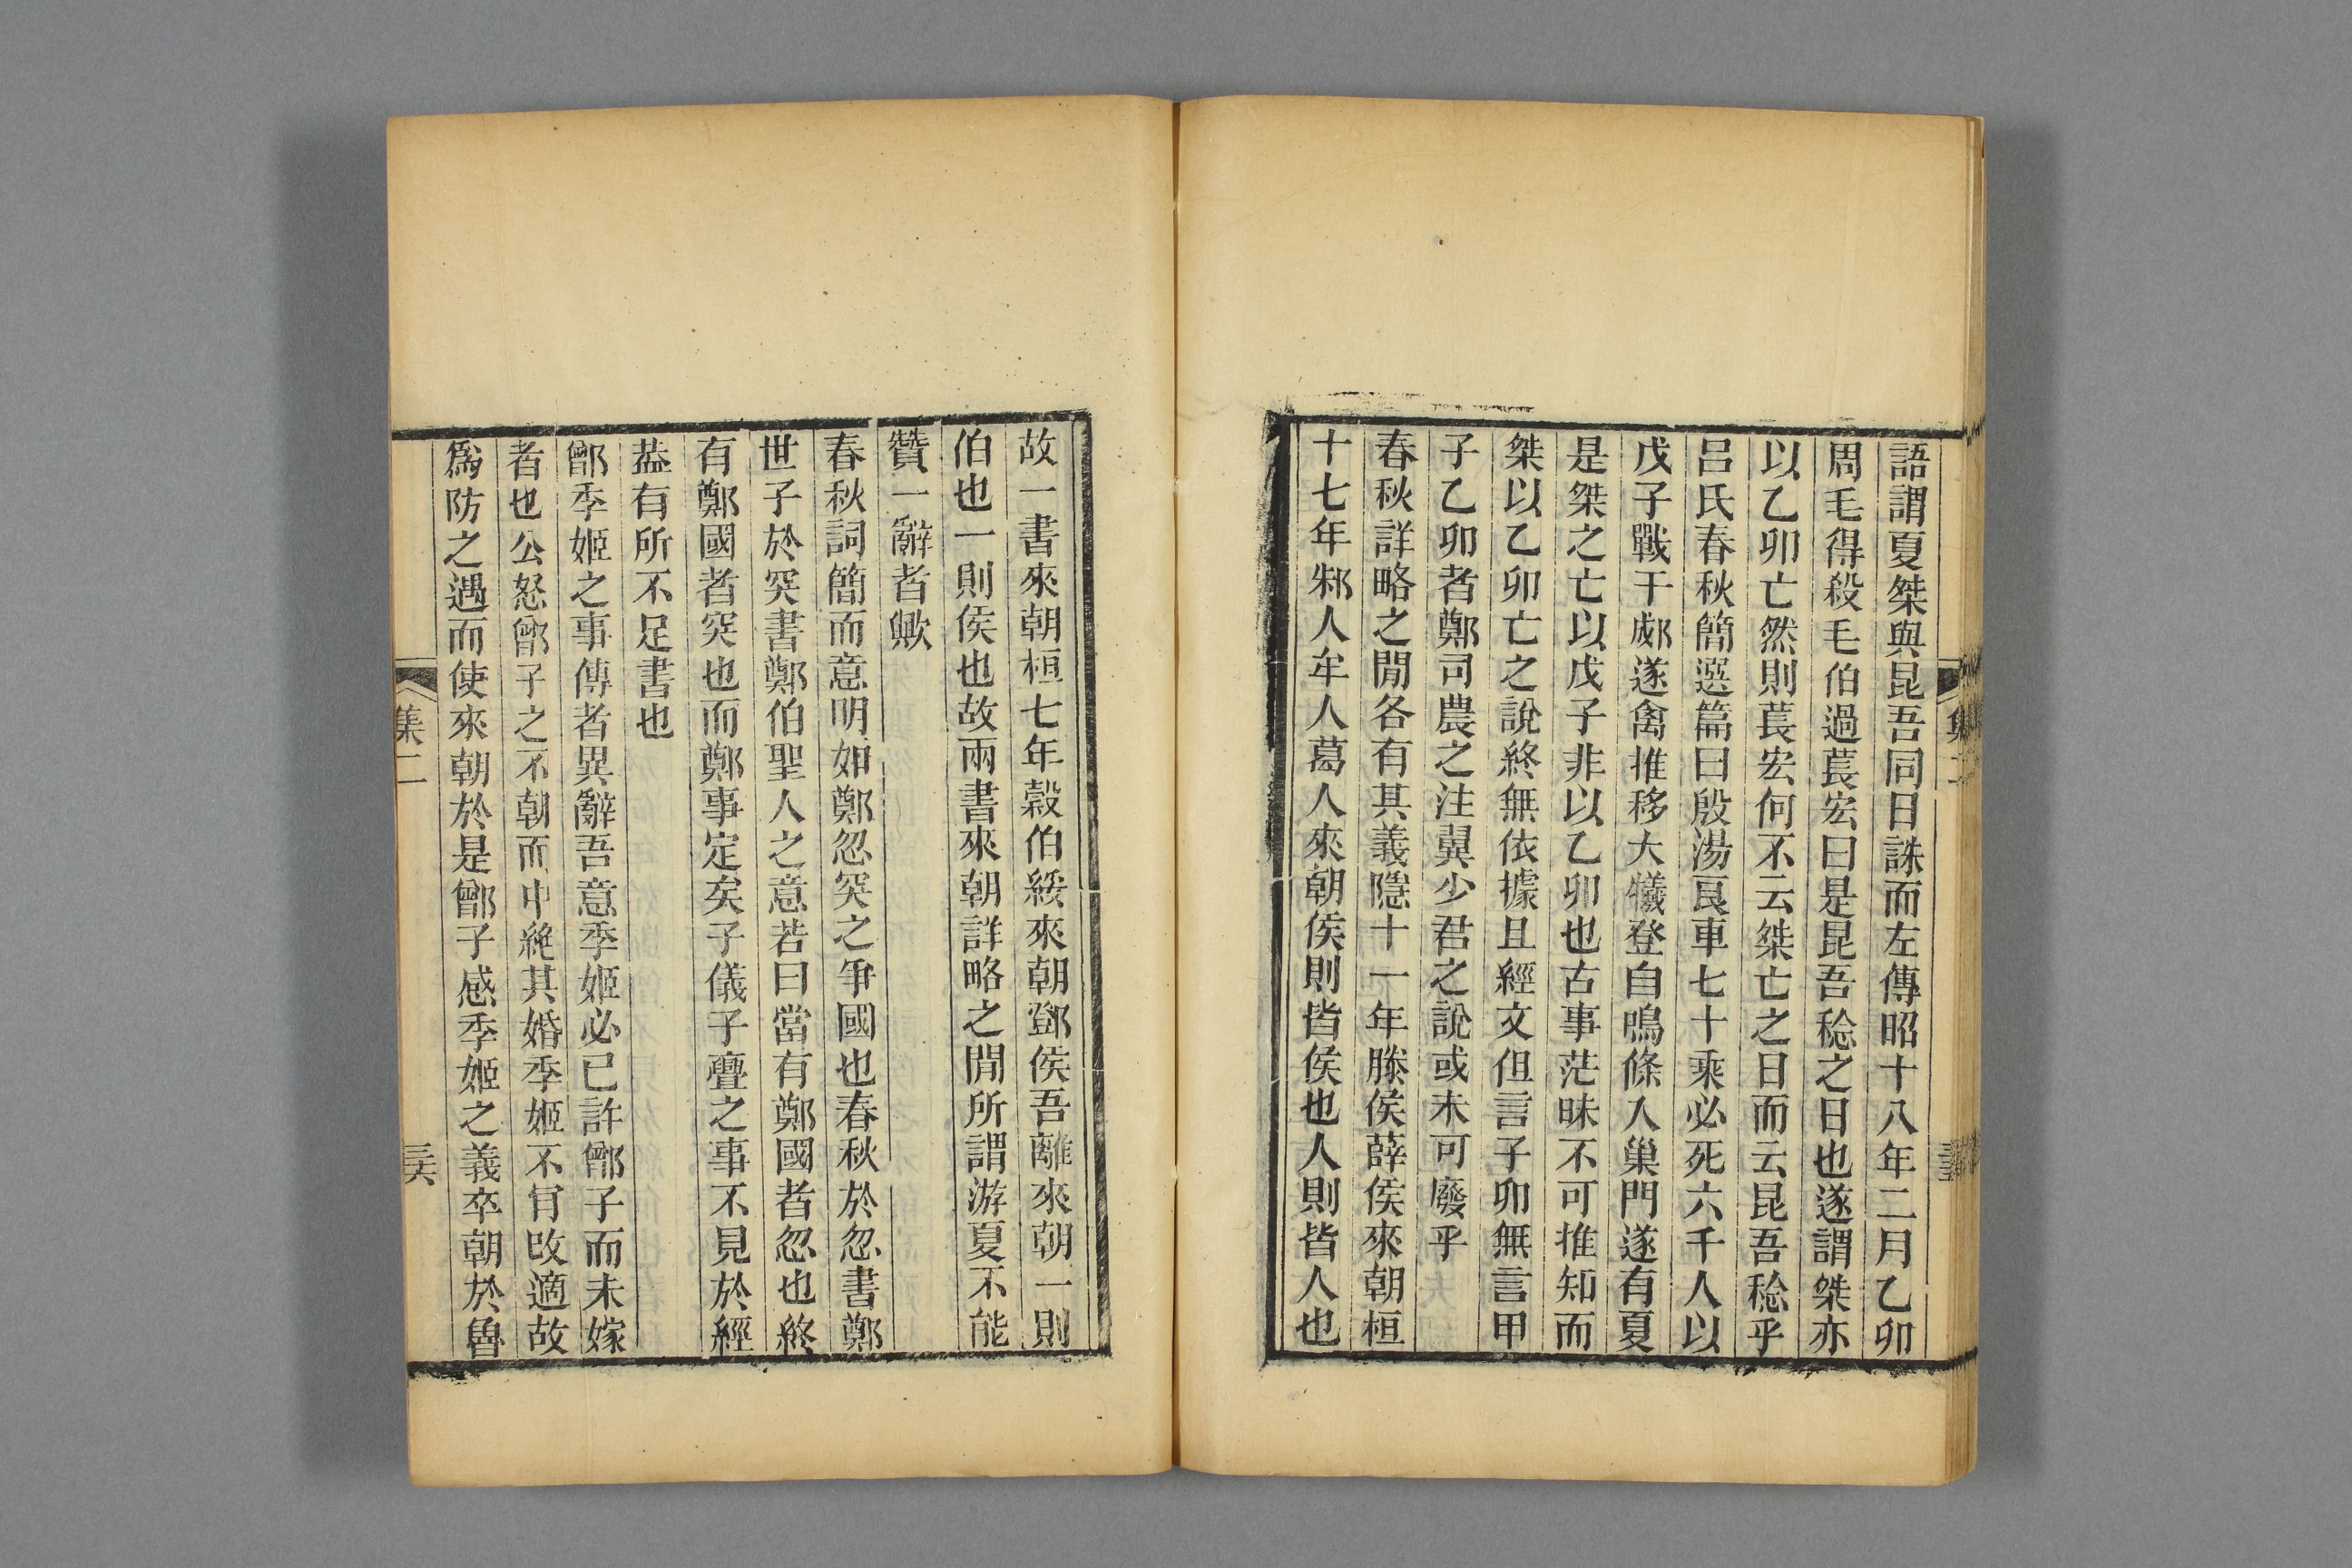 語謂夏桀與昆吾同日誅而左傳昭十八年二月乙卯
周毛得殺毛伯過萇宏曰是昆吾稔之日也遂謂桀亦
以乙卯亡然則萇宏何不云桀亡之日而云昆吾稔乎
呂氏春秋簡選篇曰殷湯良車七十乘必死六千人以
戊子戰于郕遂禽推移大犧登自鳴條入巢門遂有夏
是桀之亡以戊子非以乙卯也古事茫昧不可推知而
桀以乙卯亡之說終無依據且經文但言子卯無言甲
子乙卯者鄭司農之注翼少君之說或未可廢乎
春秋詳略之閒各有其義隱十一年滕侯薛侯來朝桓
十七年邾人牟人葛人來朝侯則皆侯也人則皆人也
集二
故一書來朝桓七年穀伯綏來朝鄧侯吾離來朝一則
伯也一則侯也故兩書來朝詳略之閒所謂游夏不能
贊一辭者歟
春秋詞簡而意明如鄭忽突之爭國也春秋於忽書鄭
世子於突書鄭伯聖人之意若曰當有鄭國者忽也終
有鄭國者突也而鄭事定矣子儀子亹之事不見於經
葢有所不足書也
鄫季姬之事傳者異辭吾意季姬必已許鄫子而未嫁
者也公怒鄫子之不朝而中絶其婚季姬不肎改適故
爲防之遇而使來朝於是鄫子感季姬之義卒朝於魯
集二
三六